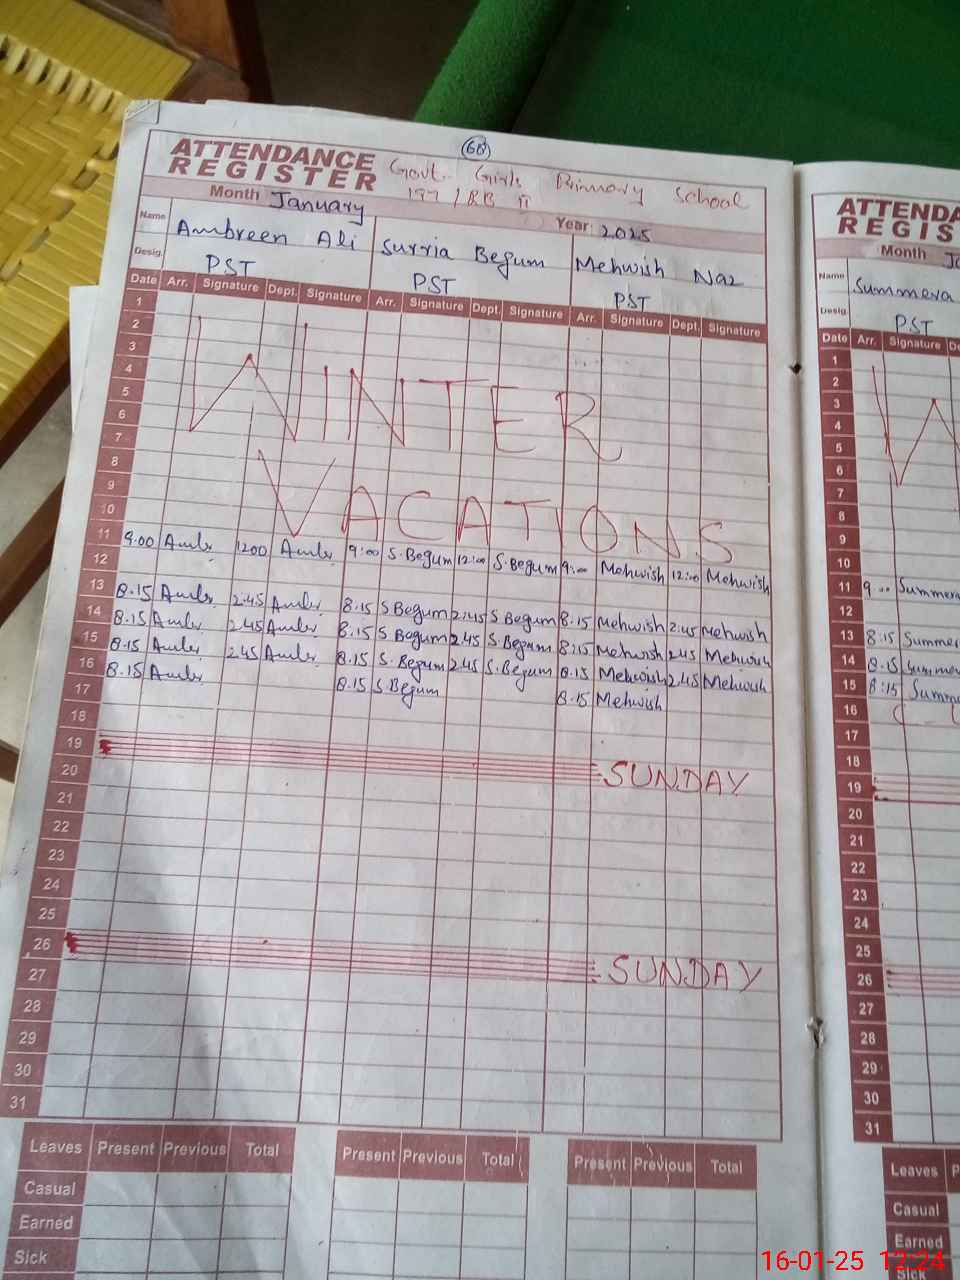 68
ATTENDANCE REGISTER Govt. Girls Primary School
197 / RB II
Month January Year: 2025
Name Ambreen Ali Surria Begum Mehwish Naz
Desig. PST PST PST
Date Arr. Signature Dept. Signature Arr. Signature Dept. Signature Arr. Signature Dept. Signature
1
2
3
4
5
6
7
WINTER
8
9
10
VACATIONS
11 9.00 Ambr 1200 Ambr 9:00 S.Begum 12:00 S.Begum 9:00 Mehwish 12:00 Mehwish
12
13 8.15 Ambr 2.45 Ambr 8.15 S Begum 2:45 S Begum 8.15 Mehwish 2:45 Mehwish
14 8.15 Ambr 2.45 Ambr 8.15 S Begum 2.45 S. Begum 8.15 Mehwish 2.45 Mehwish
15 8.15 Ambr 2.45 Ambr 8.15 S. Begum 2.45 S. Begum 8.15 Mehwish 2.45 Mehwish
16 8.15 Ambr 8.15 S.Begum 8.15 Mehwish
17
18
19 SUNDAY
20
21
22
23
24
25
26 SUNDAY
27
28
29
30
31
Leaves Present Previous Total Present Previous Total Present Previous Total
Casual
Earned
Sick
ATTENDA
REGIS
Month Ja
Name Summera
Desig. PST
Date Arr. Signature De
1
2
3
4
5
6
7
8
9
10
11 9 Summera
12
13 8:15 Summer
14 8.15 Summe
15 8:15 Summ
16
17
18
19
20
21
22
23
24
25
26
27
28
29
30
31
Leaves P
Casual
Earned
Sick
16-01-25 12:24